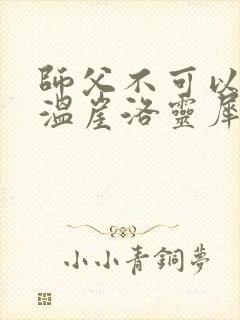 師父不可以
溫崖洛靈犀
小小青銅夢